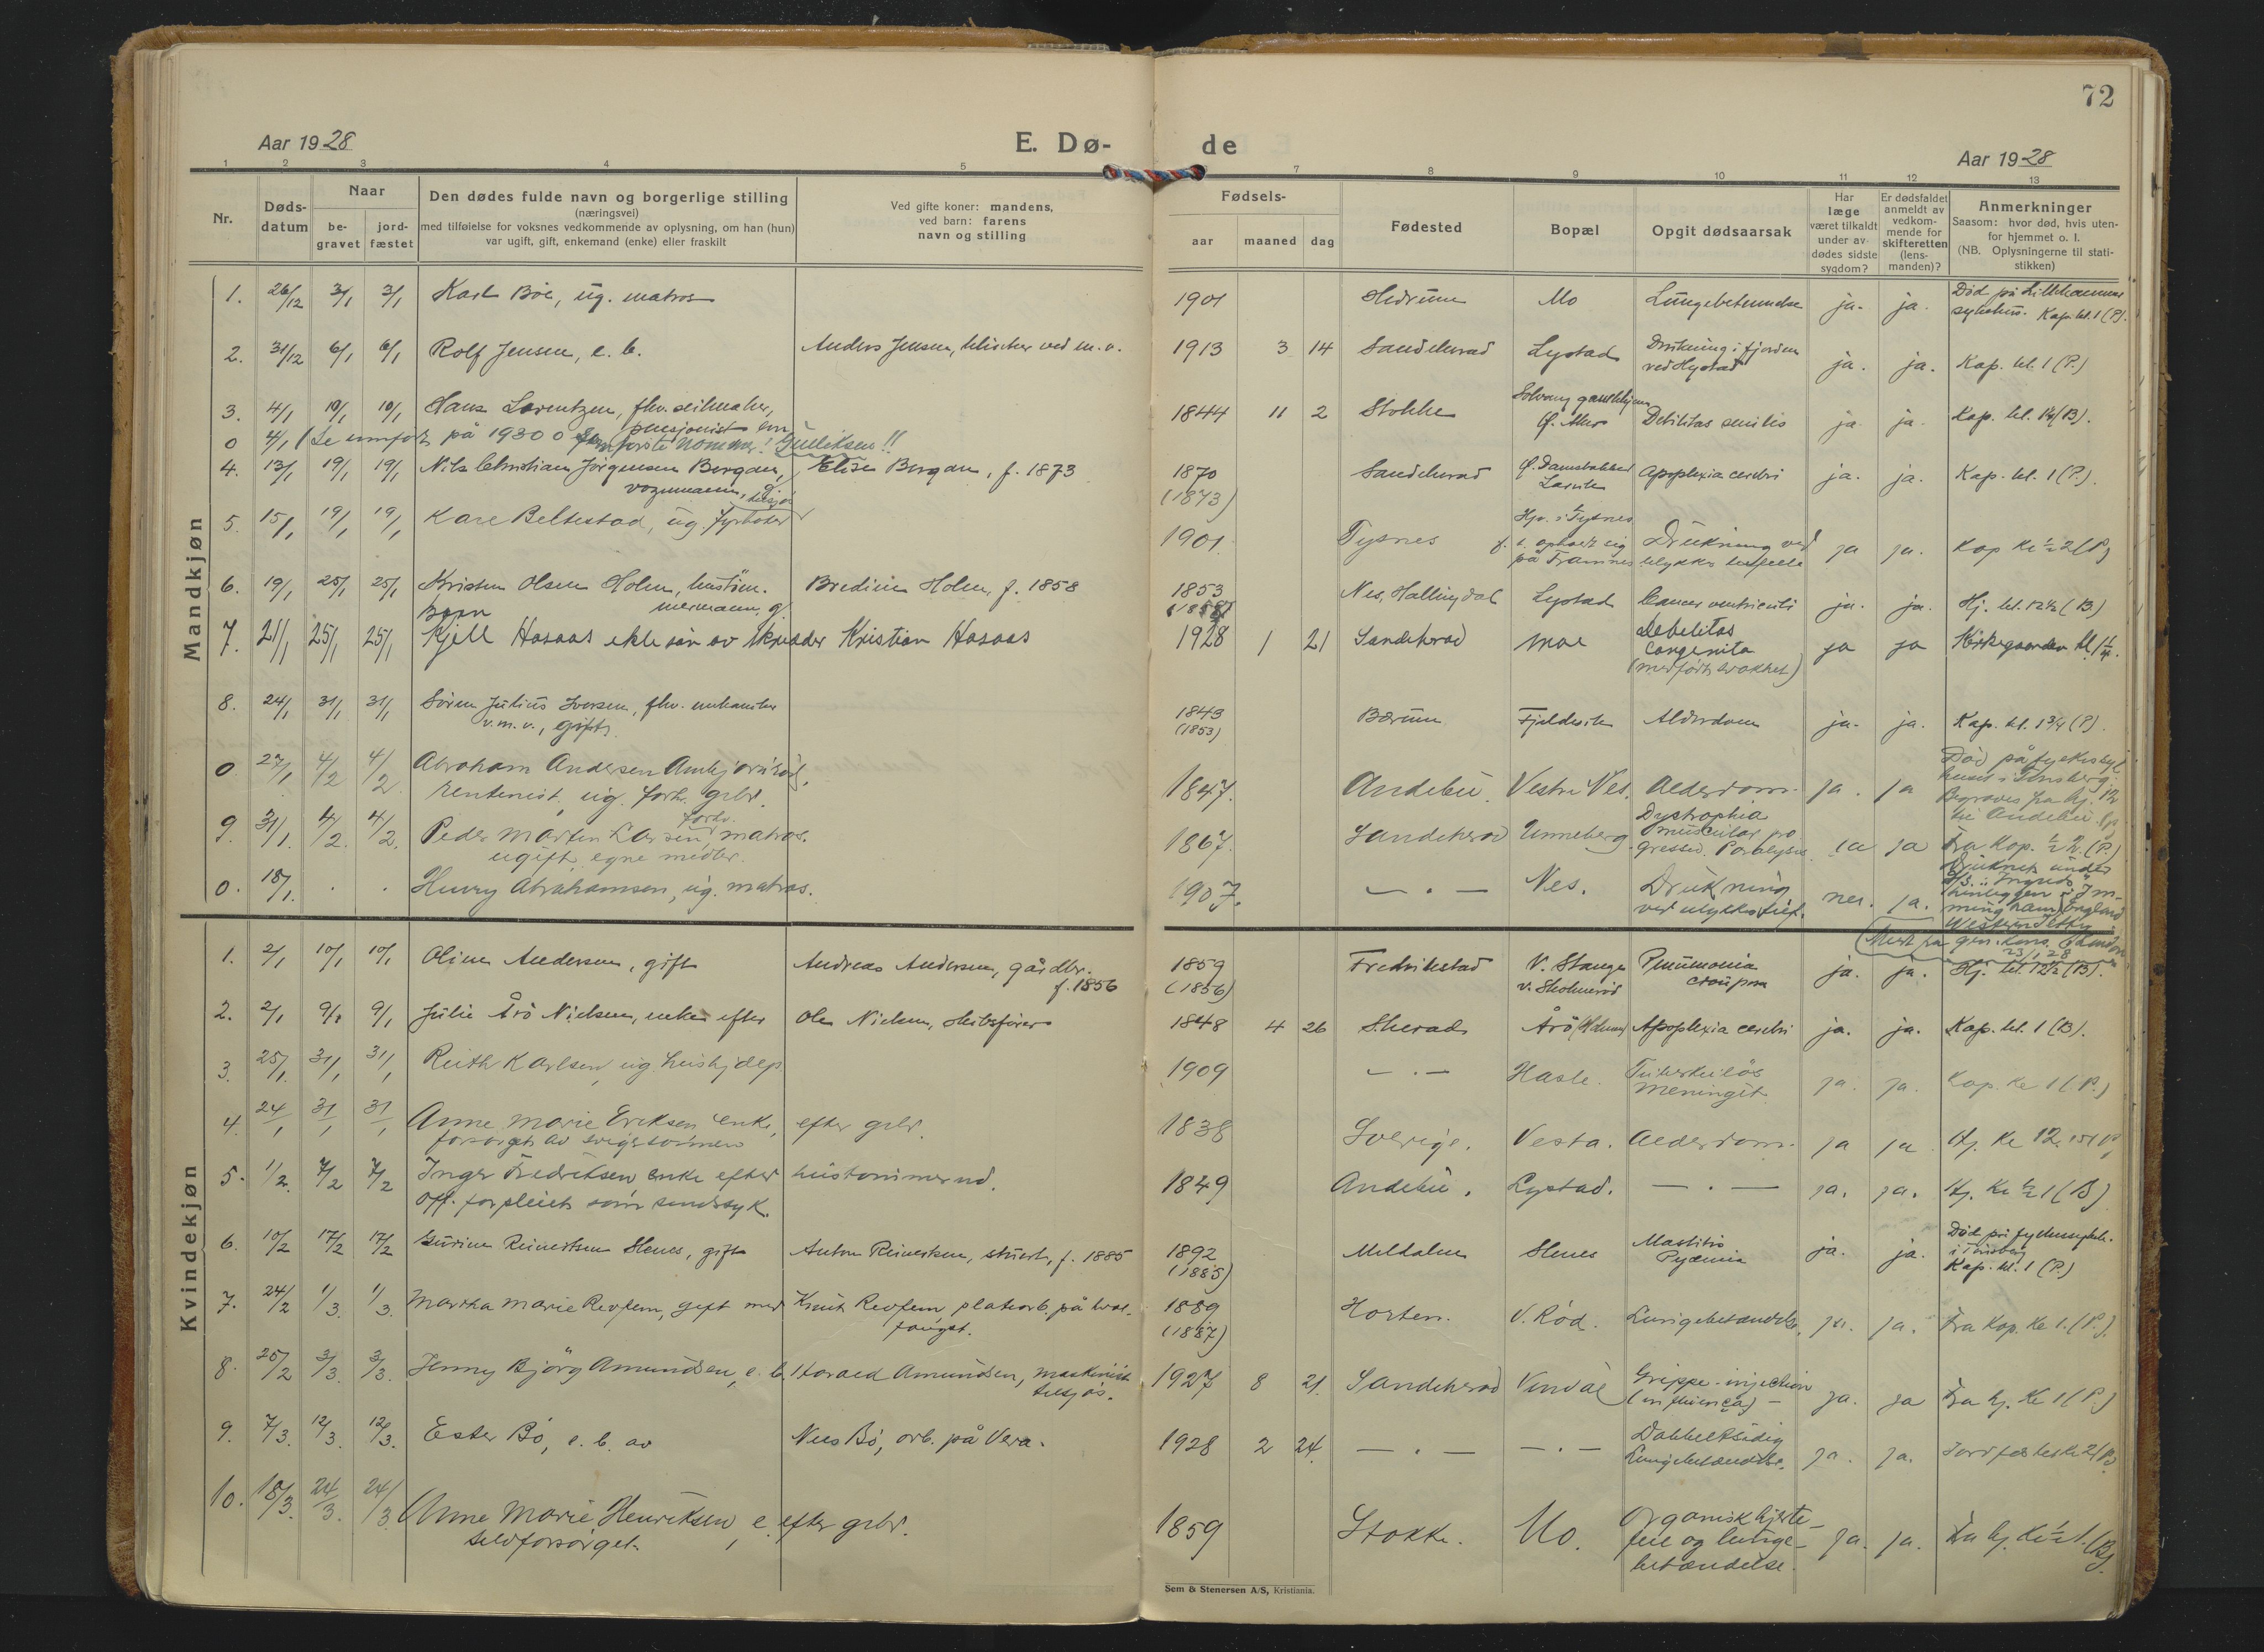 72
Aar 1928
E. Dø-
de
Aar 1928
1 2 3 4 5 7 8 9 10 11 12 13
Nr.
Døds-
datum
Naar
be-
gravet
jord-
fæstet
Den dødes fulde navn og borgerlige stilling
(næringsvei)
med tilføielse for voksnes vedkommende av oplysning, om han (hun)
var ugift, gift, enkemand (enke) eller fraskilt
Ved gifte koner: mandens,
ved barn: farens
navn og stilling
Fødsels-
aar maaned dag
Fødested
Bopæl
Opgit dødsaarsak
Har
læge
været tilkaldt
under av-
dødes sidste
sygdom?
Er dødsfaldet
anmeldt av
vedkom-
mende for
skifteretten
(lens-
manden)?
Anmerkninger
Saasom: hvor død, hvis uten-
for hjemmet o. l.
(NB. Oplysningerne til stati-
stikken)
Mandkjøn
1. 26/12 3/1 3/1 Karl Bøe, ug. matros 1901 Hedrum Mo Lungebetennelse ja. ja. Død på Lillehammer
sykehus. Kap. kl. 1 (P).
2. 31/12 6/1 6/1 Rolf Jensen, e. b. Anders Jensen, ved m. v. 1913 3 14 Sandeherad Lystad Drukning i fjorden
ved Hystad ja. ja. Kap. kl. 1 (P.)
3. 4/1 10/1 10/1 Hans Lorentzen, fhv. seilmaker,
pensjonist, em 1844 11 2 Stokke Solvang gamlehjem
Ø. Aker Debilitas senilis ja. ja. Kap. kl. (B).
0 4/1 (Se innført på 1930 0 første Nommer! Gulliksen!!
4. 13/1 19/1 19/1 Nils Christian Jørgensen Bergan,
vognmann, g. Elise Bergan, f. 1873 1870
(1873) Sandeherad Ø. Damsbakken
Larvik Apoplexia cerebri ja. ja. Kap. kl. 1 (P.).
5. 15/1 19/1 19/1 Kare Beltestad, ug. fyrbøter tilsjøs 1901 Tysnes Hjv. i Tysnes
f. t. opholdt sig
på Framnes Drukning ved
ulykkestilfelle ja ja. Kap Kl ½2 (P)
6. 19/1 25/1 25/1 Kristen Olsen Holm, hustöm-
mermann, g. Bredine Holm, f. 1858 1853
(1858) Nes, Hallingdal Lystad Cancer ventriculi ja. ja. Hj. kl. 12½ (B)
7. 21/1 25/1 25/1 Barn
Kjell Hasaas ekte søn av skredder Kristian Hasaas 1928 1 21 Sandeherad Moe Debelitas
congenita
(medfødt svakhet) ja ja Kirkegaarden kl.
8. 24/1 31/1 31/1 Søren Julius Iversen, fhv. mekaniker
v. m. v., gift 1849
(1853) Bærum Fjeldvik Alderdom ja. ja. Kap. kl. 1¾ (P).
0 27/1 4/2 4/2 Abraham Andersen Amhjørnrød,
rentenist, ug. forh. grbr. 1847. Andebu. Vestre Nes. Alderdom. ja. ja Død på fylkessyke-
huset i Tønsberg.
Begraves fra hj.
til Andebu.
9. 31/1 4/2. 4/2. Peder Martin Larsen, forhv. matros.
ugift, egne midler. 1867. Sandeherad Unneberg. Dystrophia
muscular pro
gressiv. Paralysis ja ja Fra Kap. (P.)
0. 18/1. . . Henry Abrahamsen, ug. matros. 1907. — „ — Nes. Drukning
ved ulykkestilf. nei. ja. Druknet under
D/S „Ingrid"
henliggen i Im-
mingham, England
Western Jetty
(Meld. fra gen. kons. London
23/1 28
Kvindekjøn
1. 2/1 10/1 10/1 Oline Andersen, gift Andreas Andersen, gårdbr.
f. 1856 1859
(1856) Fredrikstad V. Stange
v. Skolmerød Pneumonia
crouposa ja. ja. Hj. kl. 12½ (B).
2. 2/1 9/1 9/1 Julie Årø Nielsen, enke efter Ole Nielsen, skibsfører 1848 4 26 S.herad Årø Apoplexia cerebri ja. ja. Kap. kl. 1 (B).
3. 25/1. 31/1 31/1 Ruth Karlsen, ug. hushjelp. 1909 — „ — Hasle. Tuberkuløs
meningit. ja. ja. Kap. Kl 1 (P.)
4. 24/1 31/1 31/1 Anne Marie Eriksen enke,
forsørget av svigersønnen efter grbr. 1838 Sverige. Vesta. Alderdom. ja ja Hj. Kl 12
5. 1/2. 7/2 7/2 Inger Fredriksen enke efter
Off. forpleiet som sindssyk. hustømmermd. 1849 Andebu. Lystad. — „ — ja. ja. Hj. Kl ½1 (B)
6. 10/2 17/2 17/2 Gurine Reinertsen Heves, gift Anton Reinertsen, stuert, f. 1885 1892
(1885) Meldalen Heves Mastitis
Pyæmia ja. ja. Død på fylkessykeh.
i Tønsberg
Kap. kl. 1 (P.)
7. 24/2 1/3. 1/3. Martha Marie Revfem, gift med Knut Revfem, platearb. på hval-
fangst. 1889
(1887) Horten. V. Rød. Lungebetændelse. ja. ja. Fra Kap. Kl 1. (P.).
8. 25/2 3/3. 3/3. Jenny Bjørg Amundsen, e. b. Harald Amundsen, maskinist
tilsjøs. 1927 8 21. Sandeherad Vindal Grippe-injection
(influenca) — ja. ja Fra hj. Kl 1 (P.)
9. 7/3. 12/3. 12/3. Ester Bø, e. b. av Nils Bø, arb. på Vera. 1928 2 24. — „ — — „ — Dobbeltsidig
Lungebetændelse. ja. ja. Jordfæstes Kl 2 (P.)
10. 18/3. 24/3. 24/3. Anne Marie Henriksen, e. efter grbr.
selvforsørget. 1859 Stokke. Mo. Organisk hjerte-
feil og lunge-
betændelse. ja. ja. Fra hj. Kl ½1 (B).
Sem & Stenersen A/S, Kristiania.